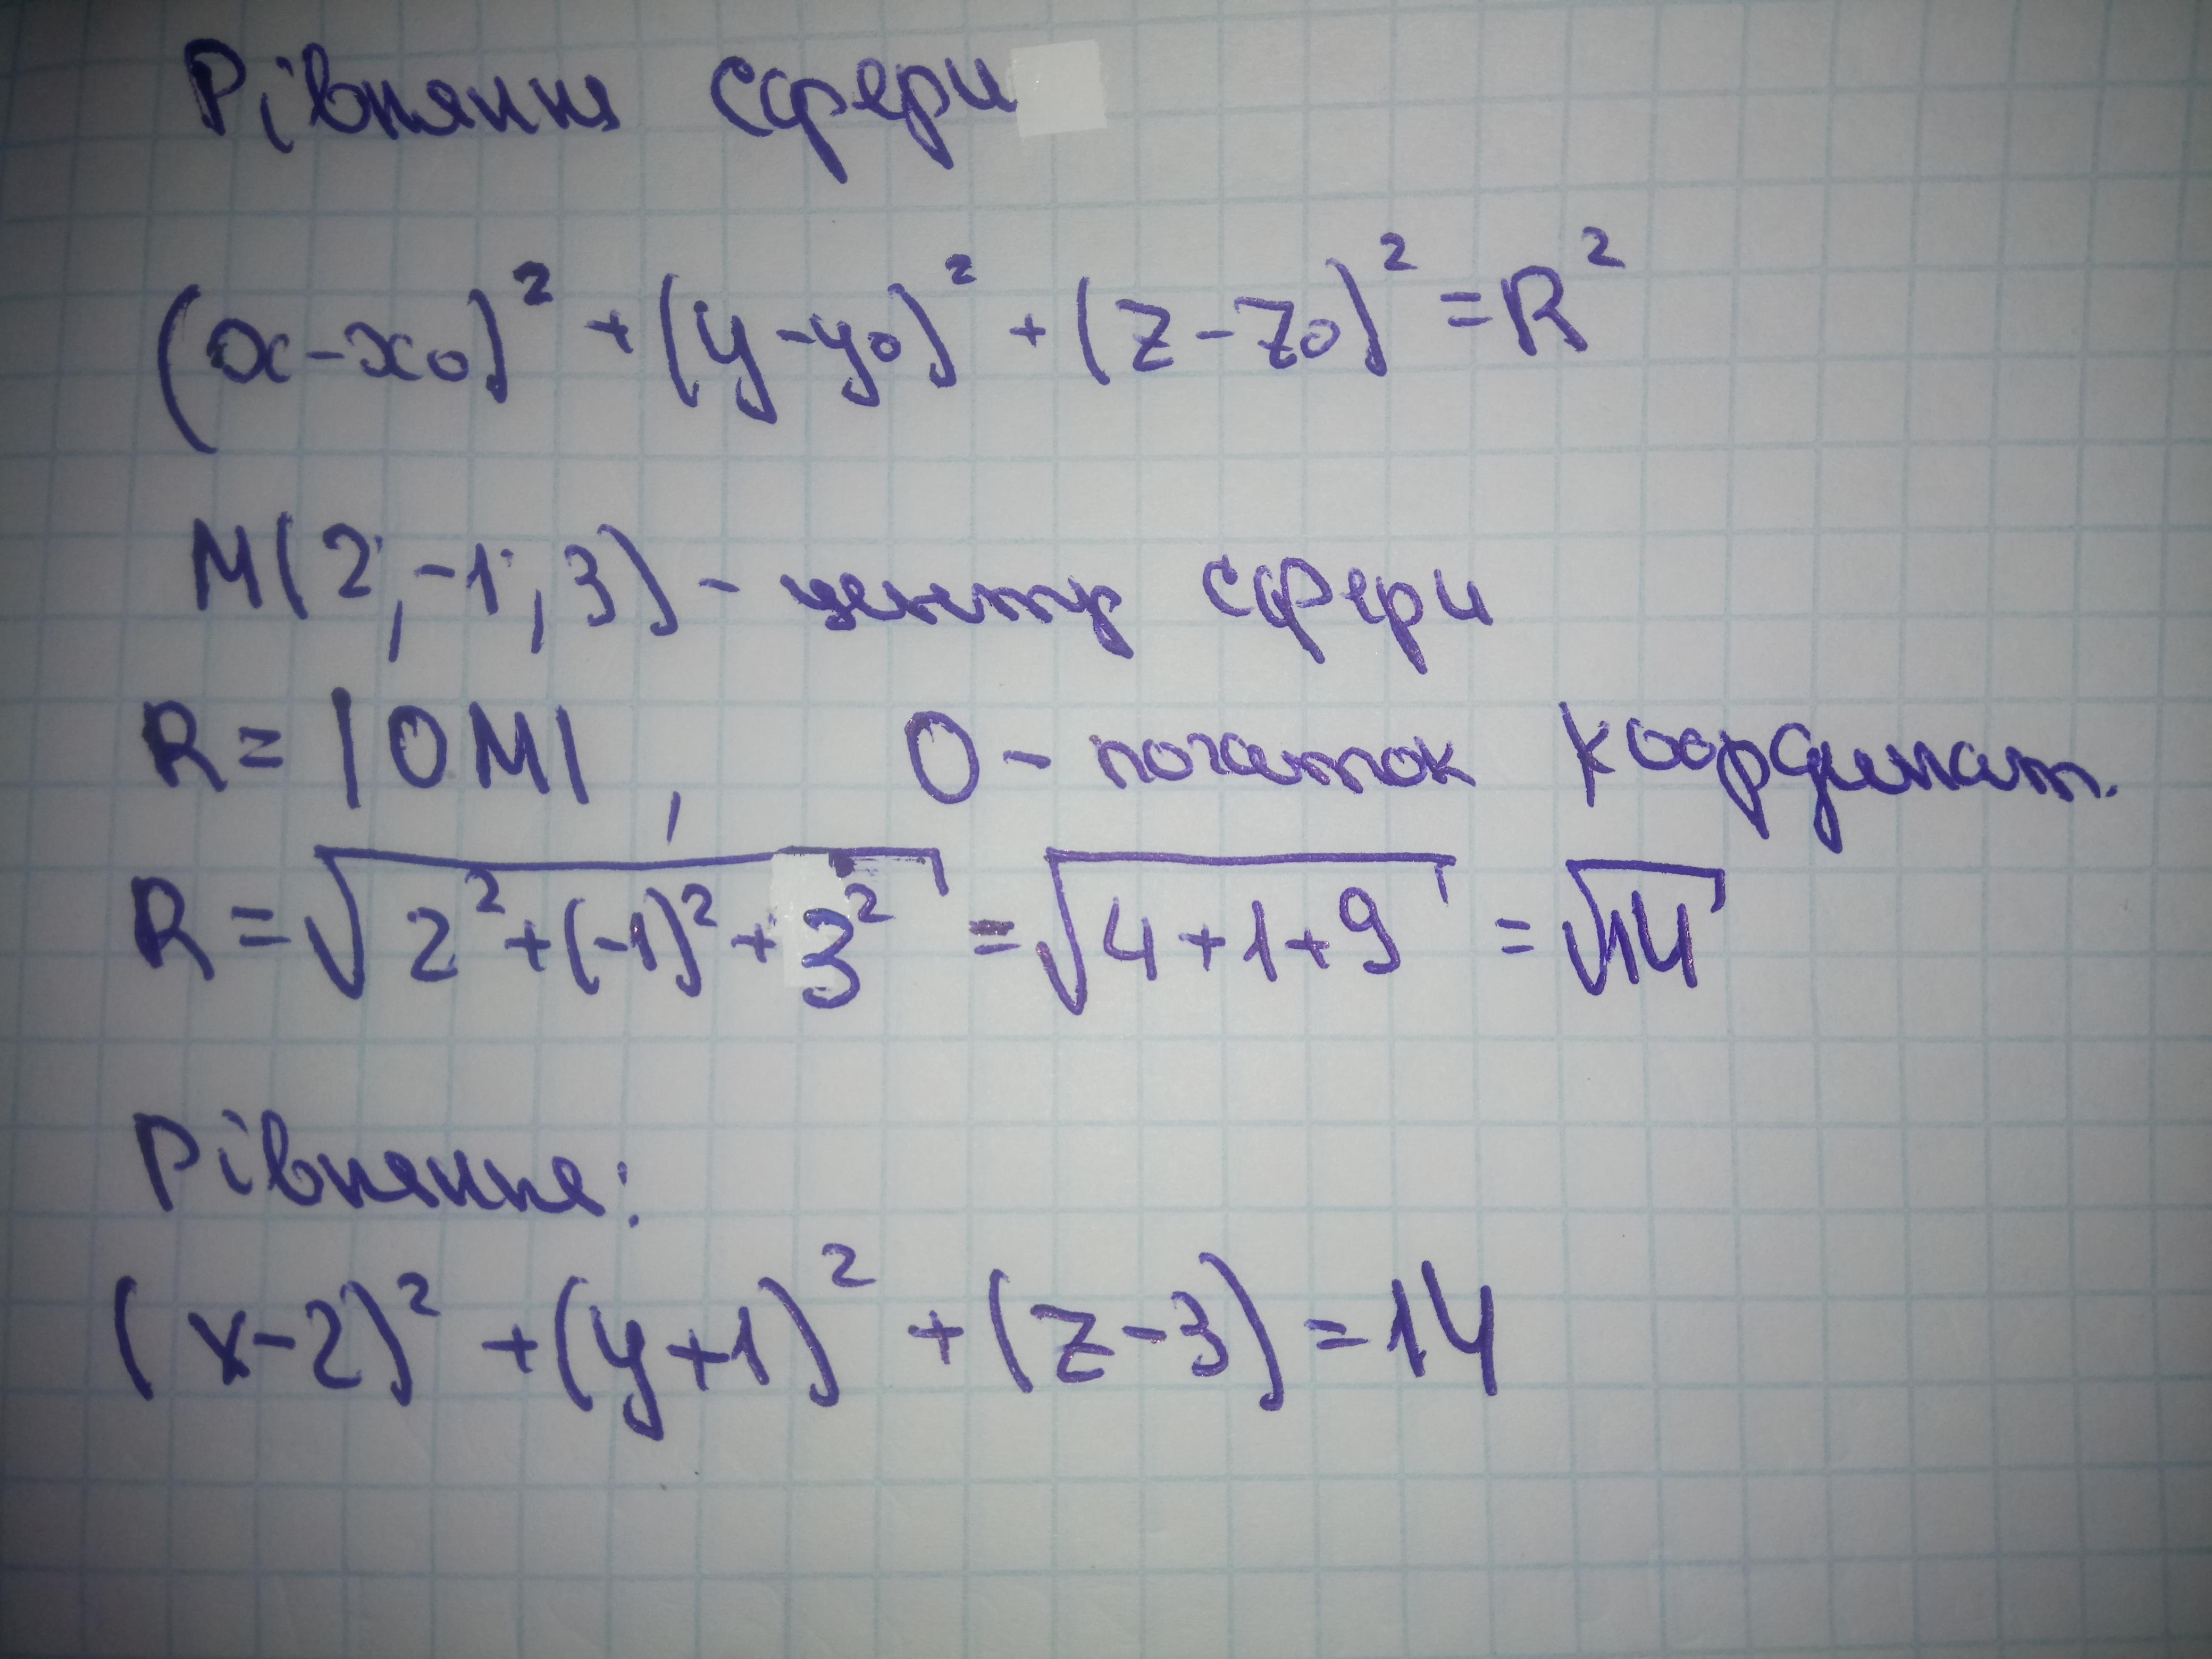 Рівняння сфери
(x-x₀)² + (y-y₀)² + (z-z₀)² = R²
M(2; -1; 3) - центр сфери
R = |OM|, O - початок координат.
R = √(2² + (-1)² + 3²) = √(4+1+9) = √14
Рівняння:
(x-2)² + (y+1)² + (z-3) = 14